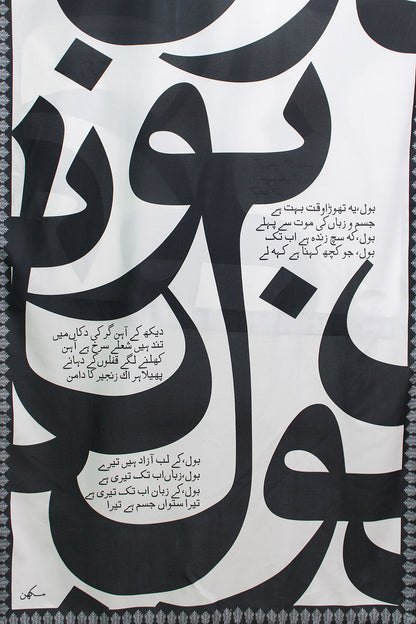 بول
بول،یہ تھوڑا وقت بہت ہے
جسم و زباں کی موت سے پہلے
بول،کہ سچ زندہ ہے اب تک
بول، جو کچھ کہنا ہے کہہ لے
دیکھ کے آہن گر کی دکاں میں
تند ہیں شعلے سرخ ہے آہن
کھلنے لگے قفلوں کے دہانے
پھیلا ہر اک زنجیر کا دامن
بول،کے لب آزاد ہیں تیرے
بول،زباں اب تک تیری ہے
بول،کے زبان اب تک تیری ہے
تیرا ستواں جسم ہے تیرا